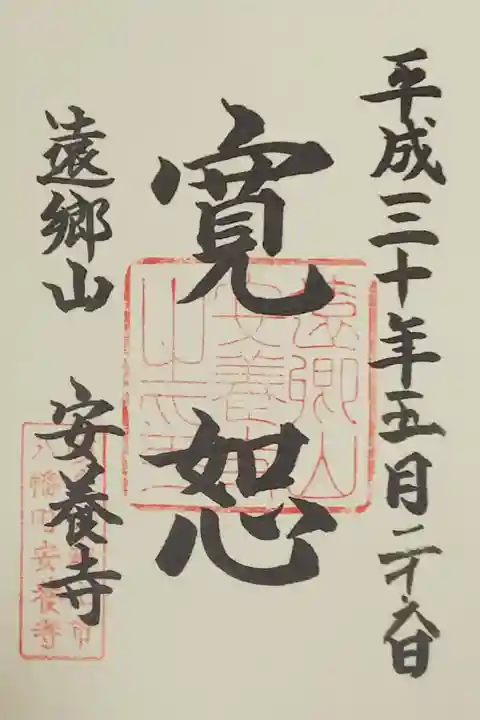 平成三十年五月二十六日
寛恕
遠郷山 安養寺
遠郷山
安養寺
八幡町安養寺